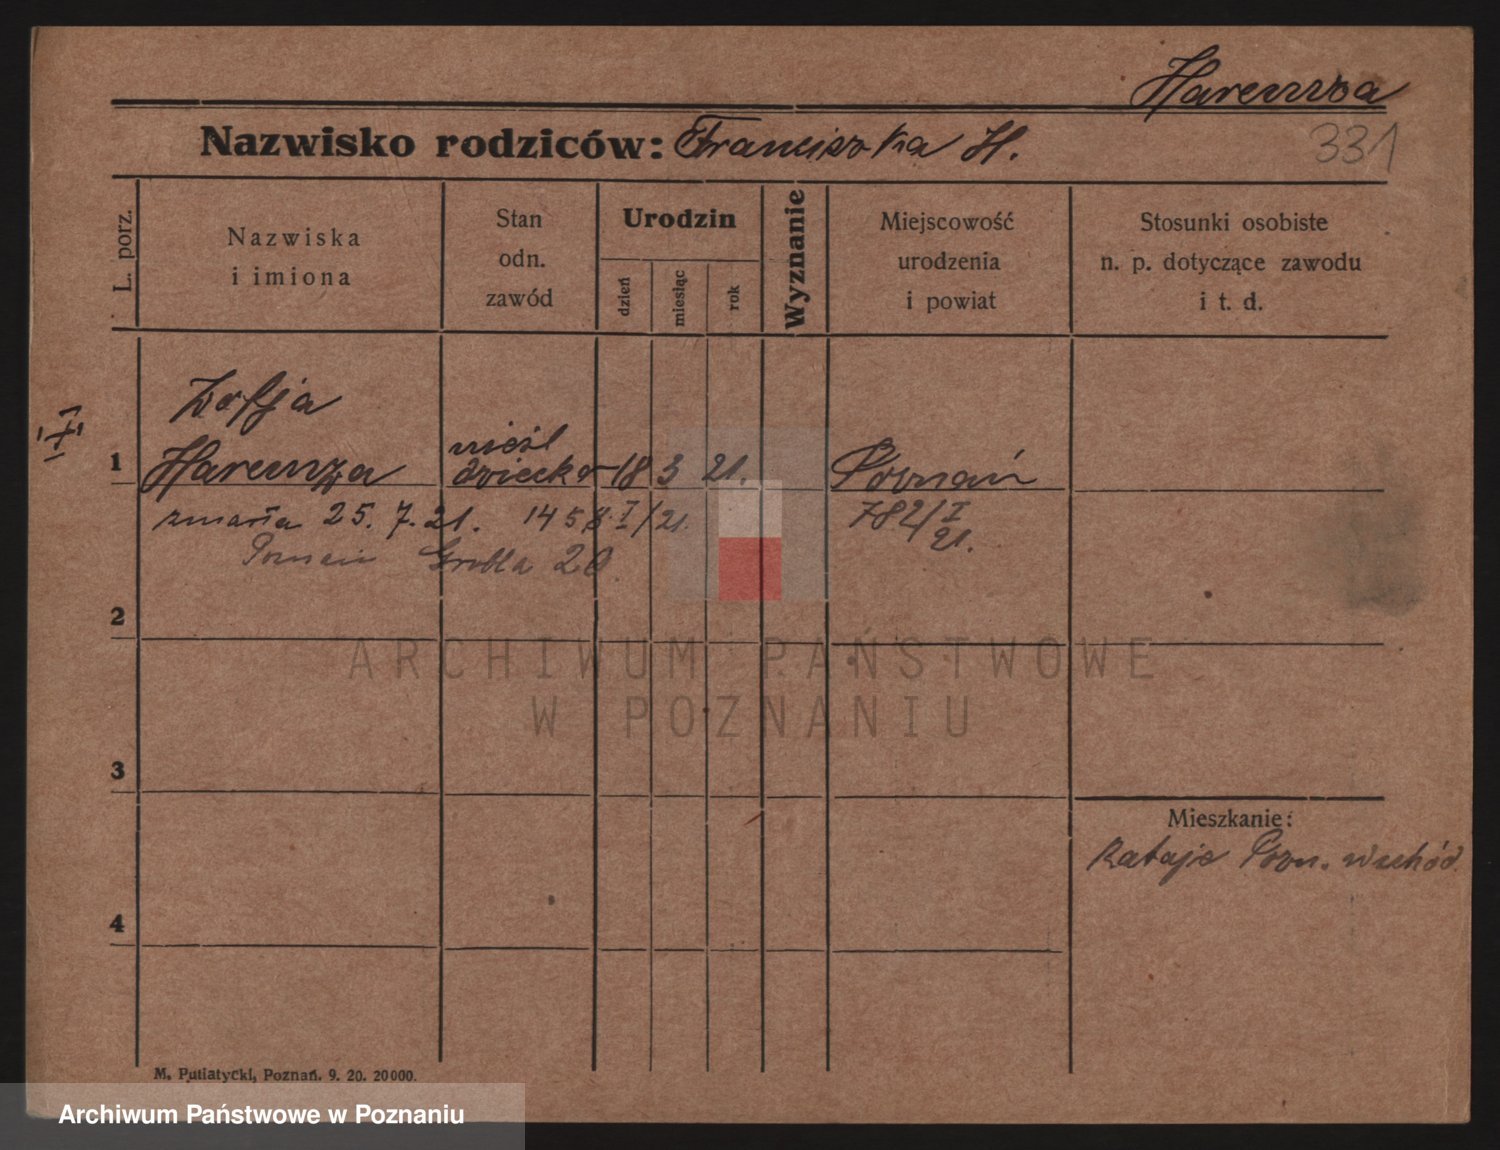 Haremza
Nazwisko rodziców: Franciszka H.
331
L. porz.
Nazwiska
i imiona
Stan
odn.
zawód
Urodzin
dzień
miesiąc
rok
Wyznanie
Miejscowość
urodzenia
i powiat
Stosunki osobiste
n. p. dotyczące zawodu
i t. d.
Zofja
1 Haremza nieśl dziecko 18 3 21. Poznań
zmarła 25. 7. 21. 1458 I/21. 782/I 21.
Poznań Grobla 20
2
3
4
Mieszkanie:
Rataje Pozn. wschód.
M. Putiatycki, Poznań. 9. 20. 20000.
ARCHIWUM PAŃSTWOWE
W POZNANIU
Archiwum Państwowe w Poznaniu